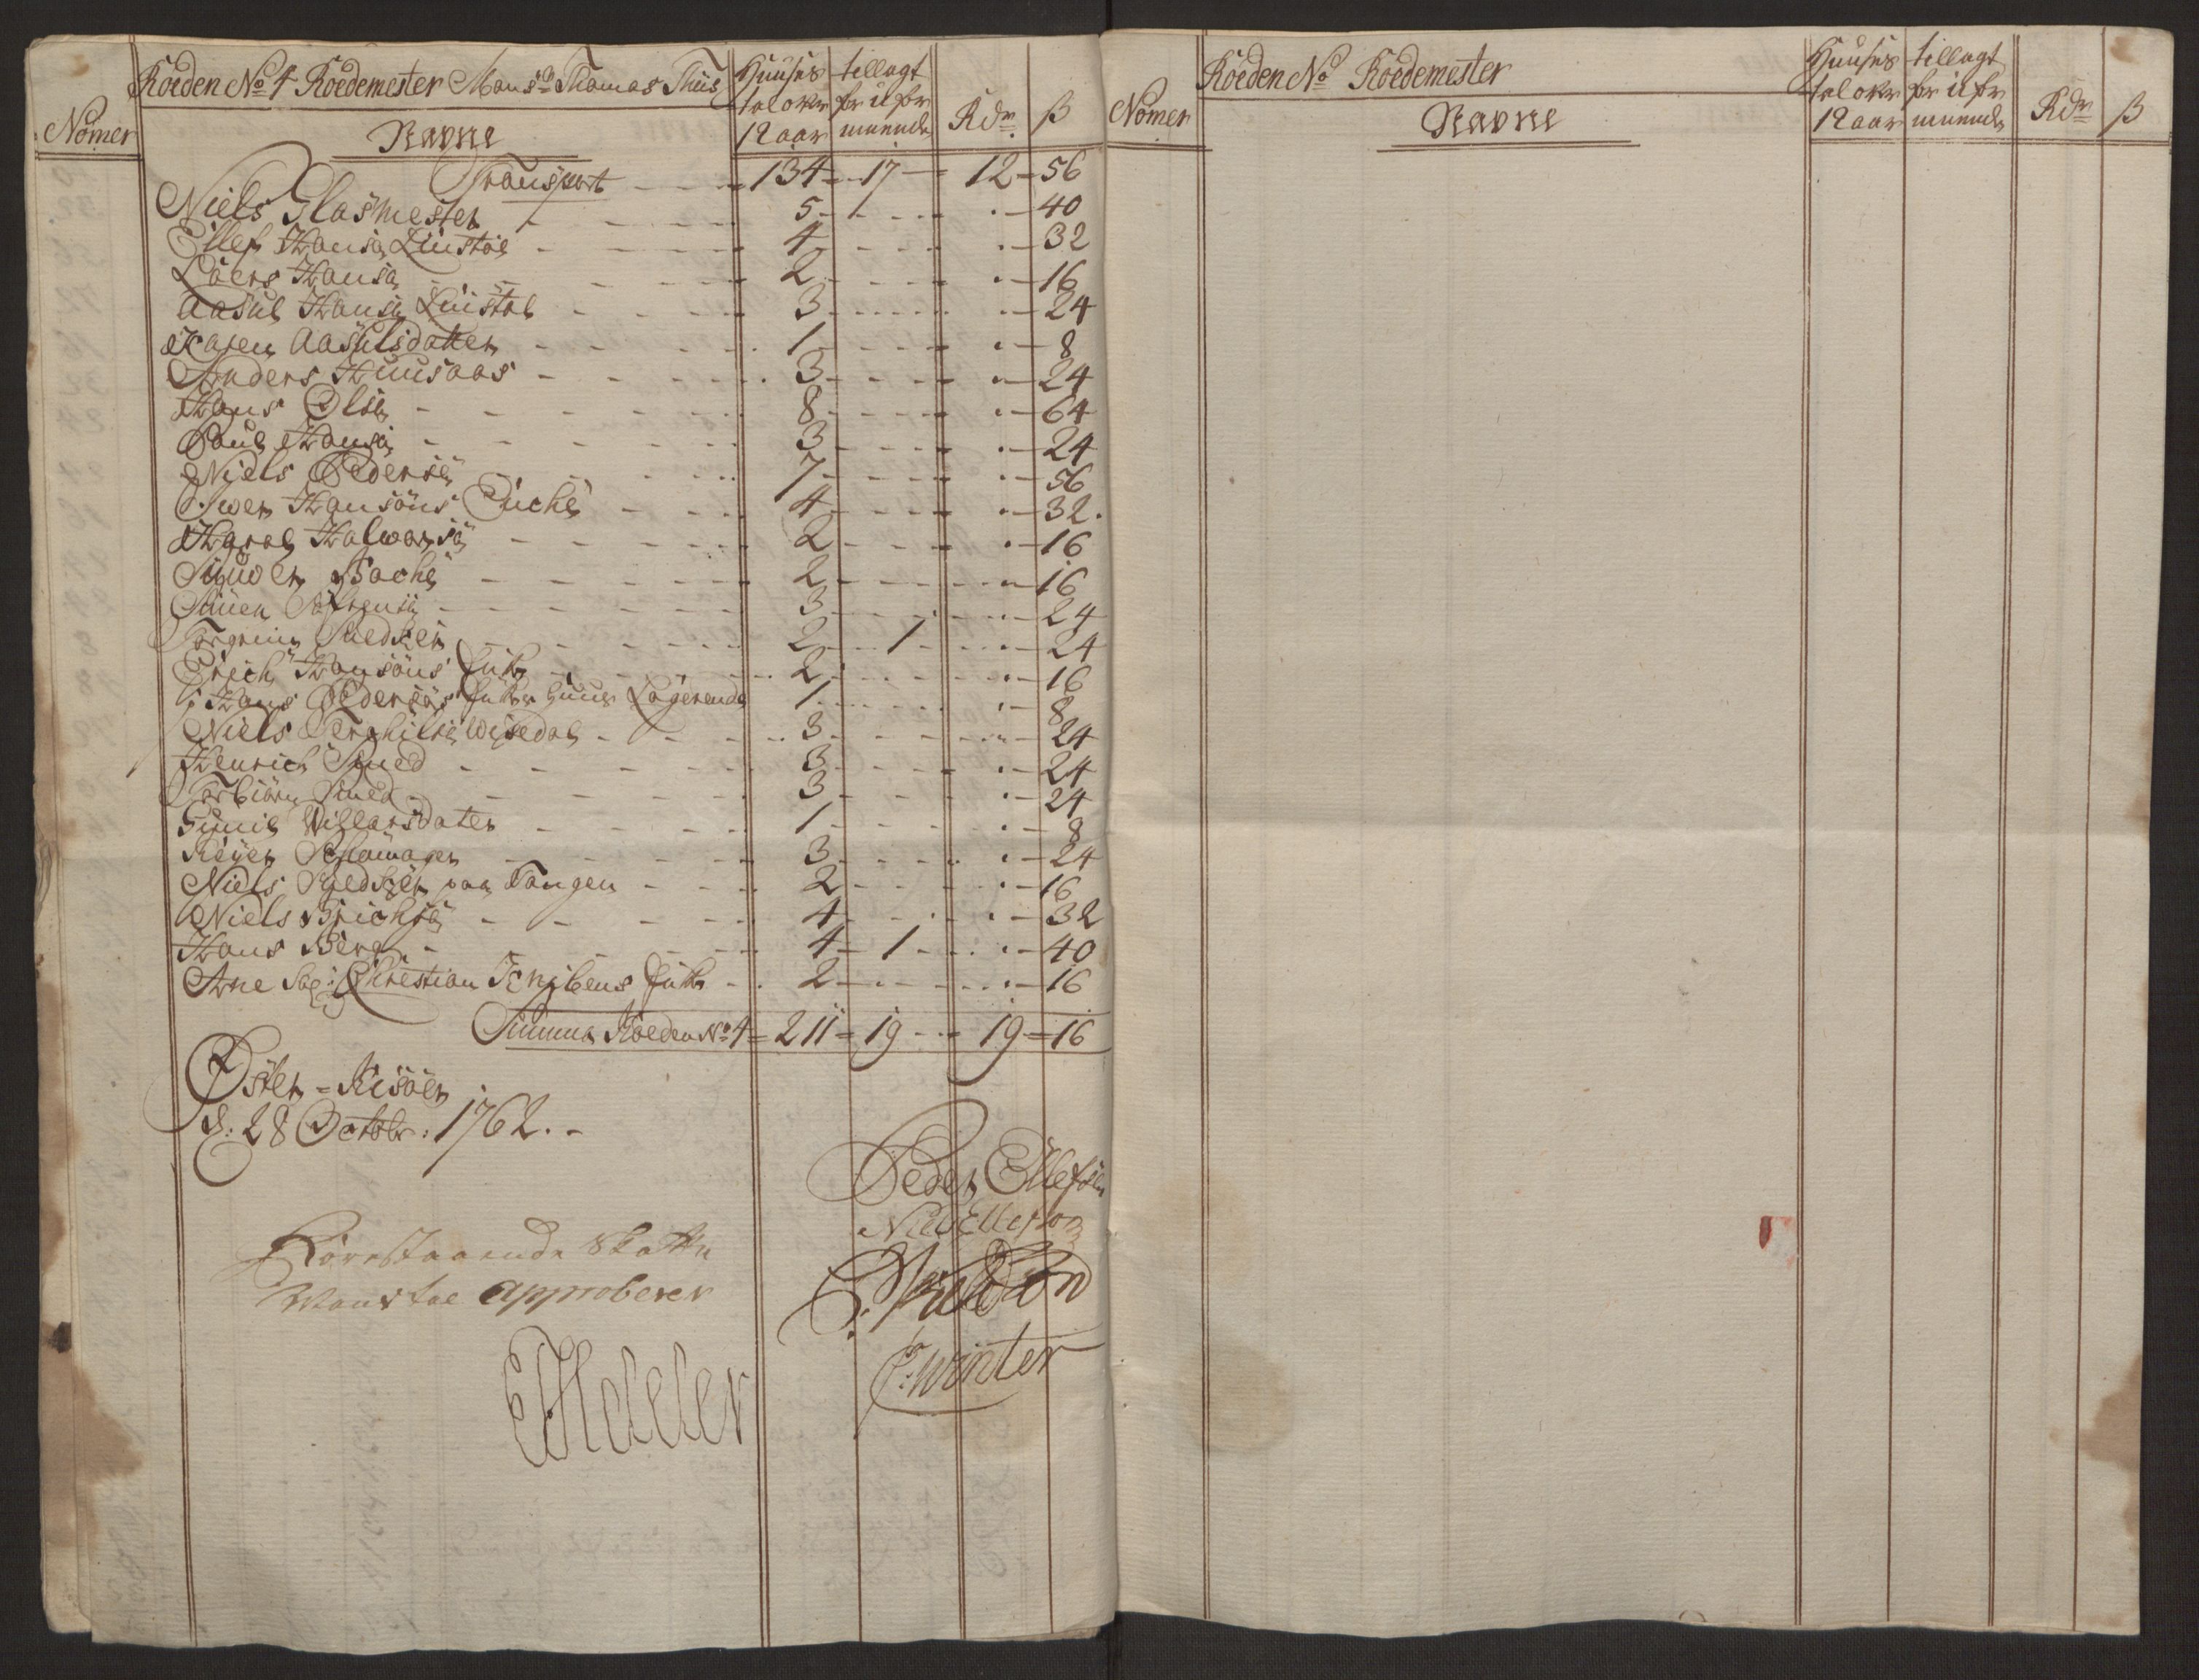 Roeden No 4 Roedemester Mons:r Thomas Thiis
Huuses tal over 12 aar
tillagt for u for muende
Rdr
ß
Nomer
Navne
Transport - - 134 - 17 - 12 - 56
Niels Glasmester - - 5 - 40
Ellef Hansen Linstøe - - 4 - 32
Laers Hansen - - 2 - 16
Aasul Hansen Linstøl - - 3 - 24
Karen Aasulsdatter - - 1 - 8
Anders Huusaas - - 3 - 24
Hans Olsen - - 8 - 64
Poul Hansen - - 3 - 24
Niels Pedersen - - 7 - 56
Iver Hansøns Encke - - 4 - 32
Haral Halvorsen - - 2 - 16
Siguer Bache - - 2 - 16
- - 3 - 24
Torgrim Snedker - - 2 - 1 - 24
Erich Hansøns Enke - - 2 - 16
Hans Pedersøns Enkes huus Logerende - 1 - 8
Niels Terchilsen Wisedal - - 3 - 24
Henrich Smed - - 3 - 24
Torbiørn Smed - - 3 - 24
Gunil Villarsdater - - 1 - 8
Reyer - - 3 - 24
Niels Snedker paa Tangen - - 2 - 16
Niels Erichsen - - 4 - 32
Hans Berg - - 4 - 1 - 40
Arne Sal: Christian Jensens Enke - - 2 - 16
Summa Roeden No 4 = 211 = 19 - 19 - 16
Øster-Riisøer
d: 28 Octobr: 1762.-
Peder Ellefsen
Niels Ellefsøn
C: Winter
Forestaaende Skatte
Mandtal approberer
Adeler
Nomer
Roeden No Roedemester
Navne
Huuses tal over 12 aar
tillagt for u for muende
Rdr
ß